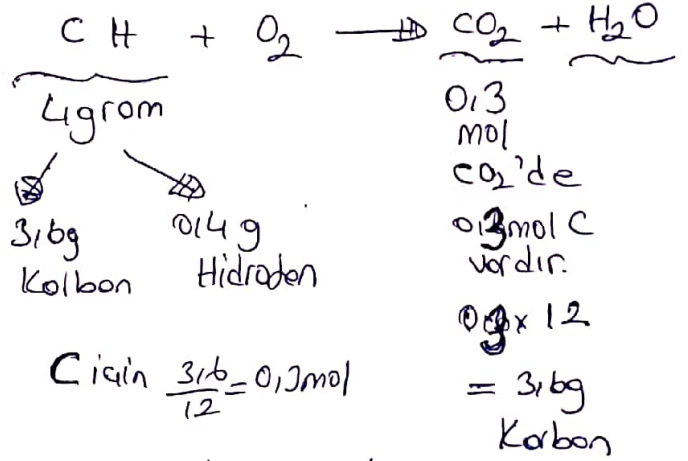 CH + O₂ → CO₂ + H₂O
4grom
3,6g
Kolbon
0,4 g
Hidroden
0,3
mol
CO₂'de
0,3mol C
vardır.
0,3x 12
= 3,6g
Karbon
C için 3,6/12 = 0,3mol